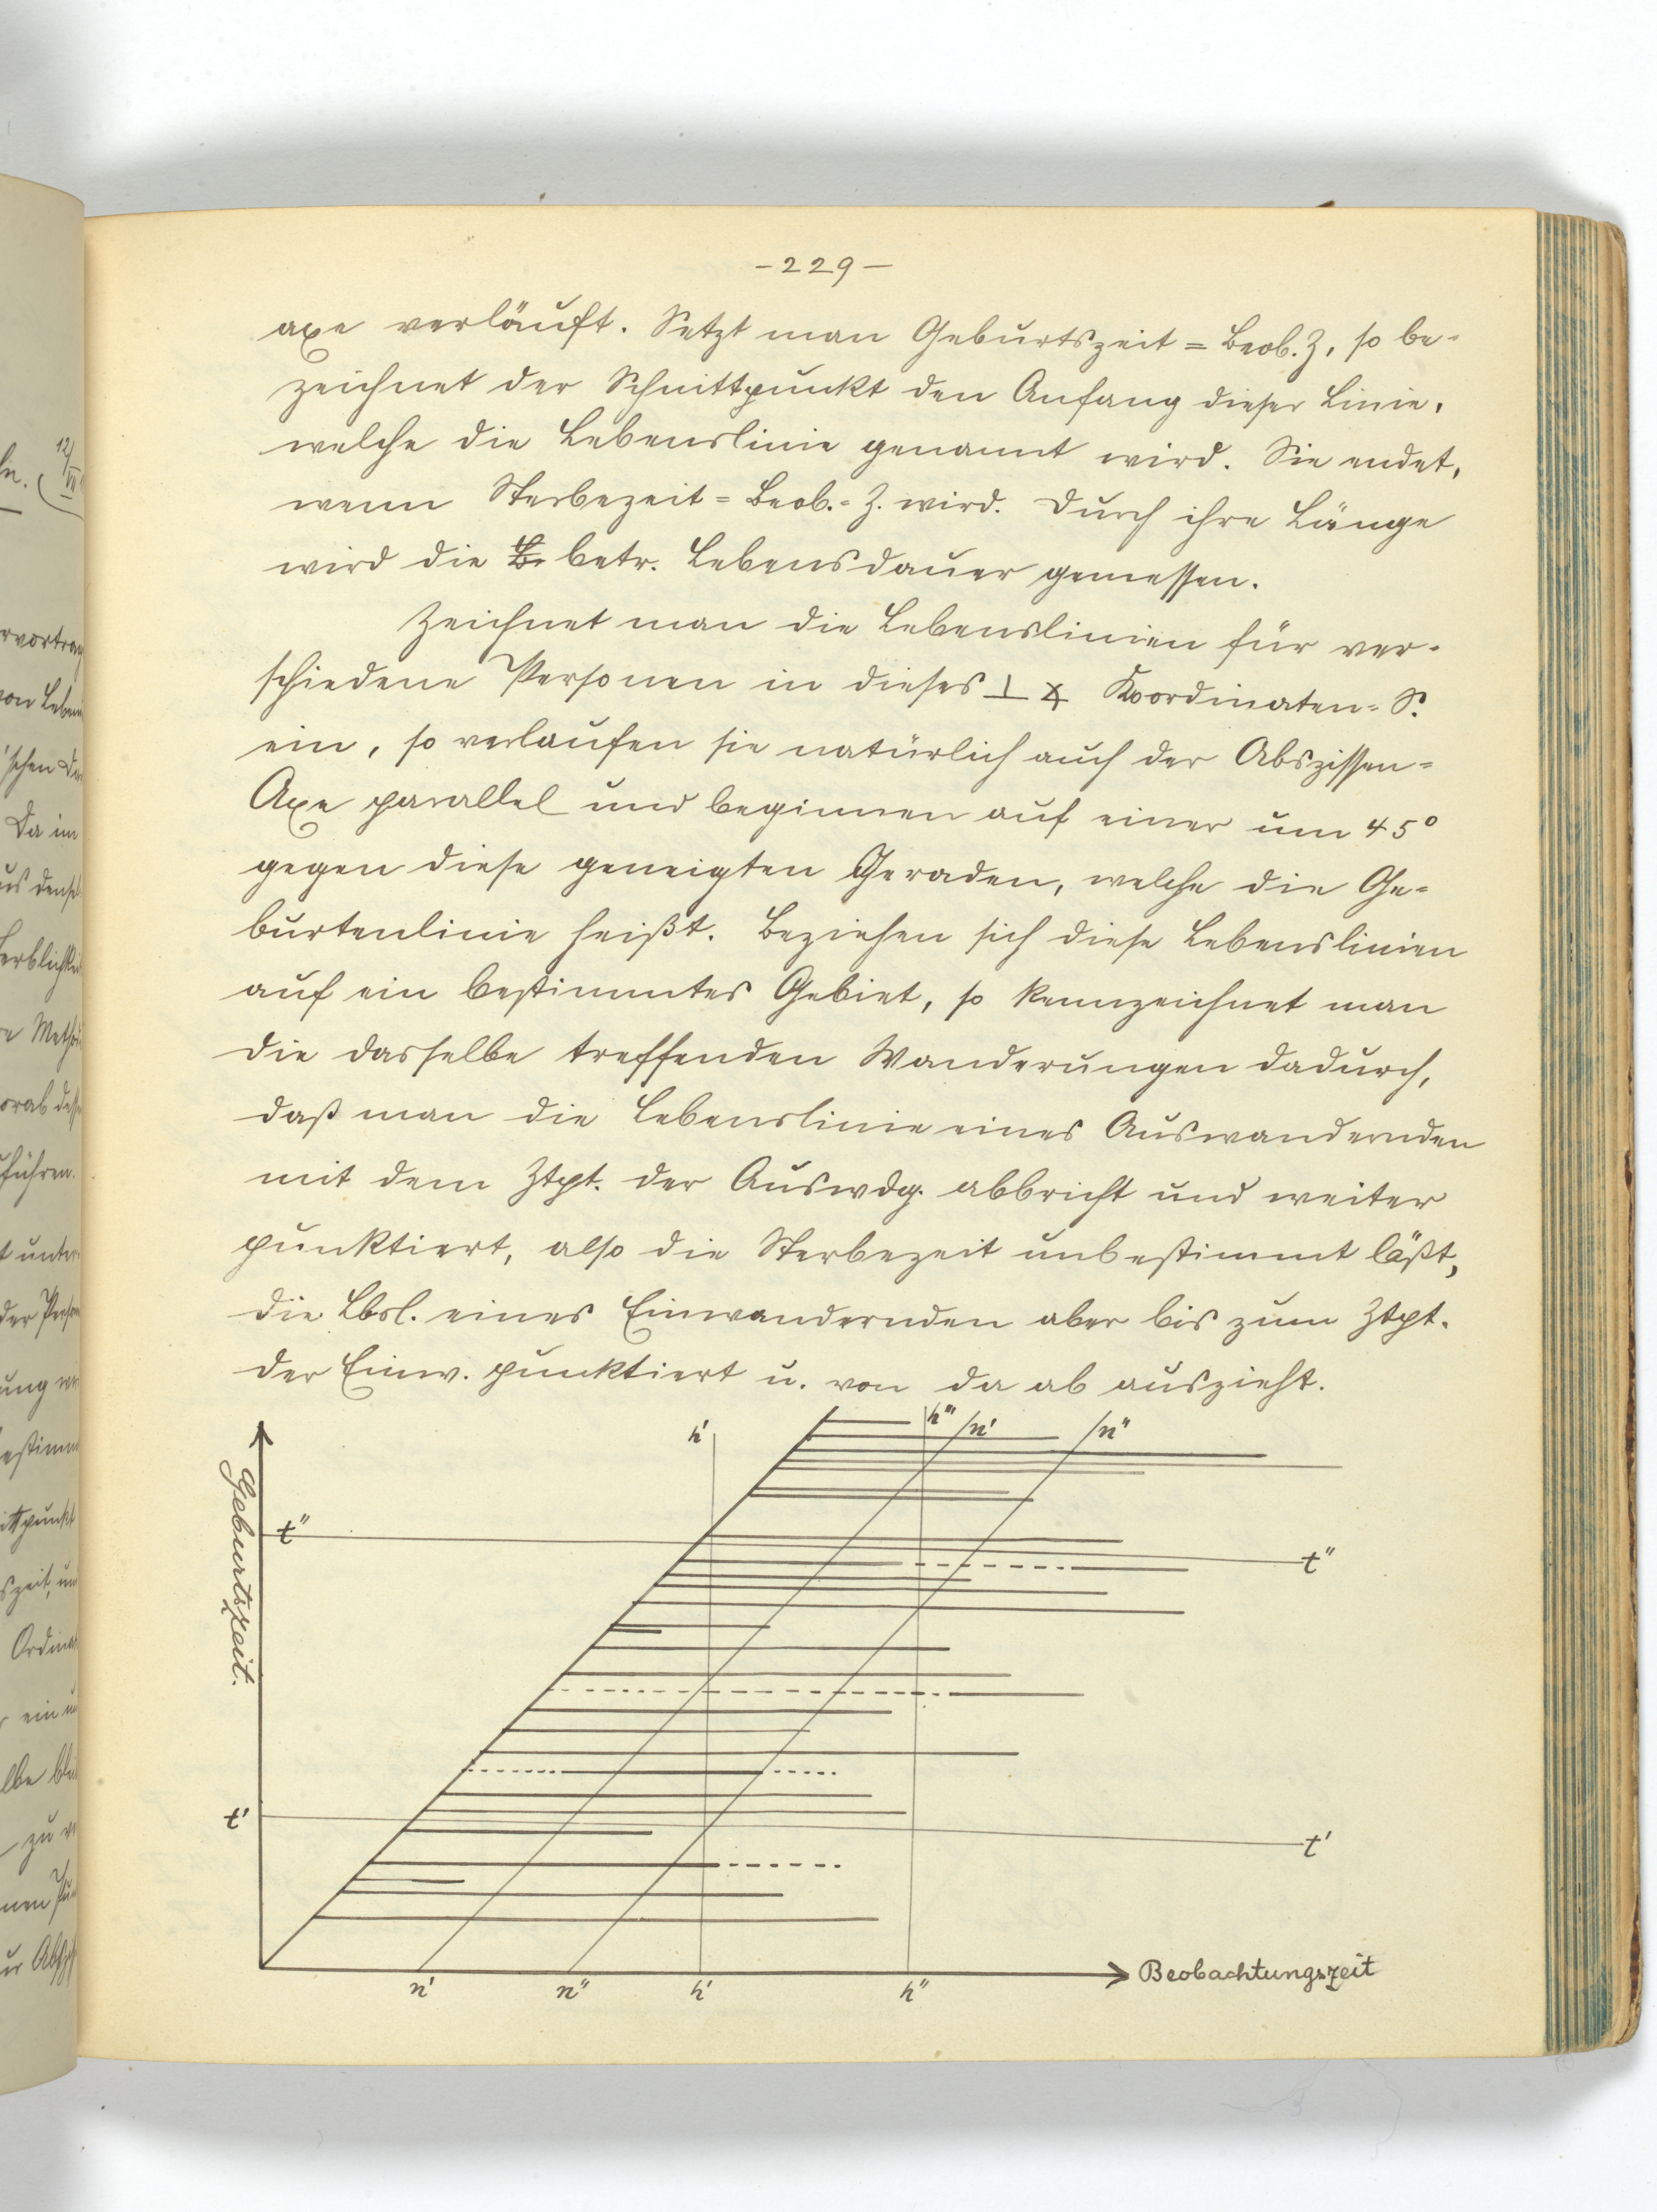 -229-
axe verläuft. Setzt man Geburtszeit = Beob. Z, so be-
zeichnet der Schnittpunkt den Anfang dieser Linie,
welche die Lebenslinie genannt wird. Sie endet,
wenn Sterbezeit = Beob.-Z. wird. Durch ihre Länge
wird die betr. Lebensdauer gemessen.
Zeichnet man die Lebenslinien für ver-
schiedene Personen in dieses ⊥ ∡ Koordinaten-S.
ein, so verlaufen sie natürlich auch der Abszissen-
Axe parallel und beginnen auf einer um 45°
gegen diese geneigten Geraden, welche die Ge-
burtenlinie heißt. Beziehen sich diese Lebenslinien
auf ein bestimmtes Gebiet, so kennzeichnet man
die dasselbe treffenden Wanderungen dadurch,
daß man die Lebenslinie eines Auswandernden
mit dem Ztpt. der Auswdg. abbricht und weiter
punktiert, also die Sterbezeit unbestimmt läßt,
die Lbsl. eines Einwandernden aber bis zum Ztpt.
der Einw. punktiert u. von da ab auszieht.
h' h''' n' n''
t'' t''
Geburtszeit.
t' t'
n' n'' h' h'' Beobachtungszeit
12/
rvortrag
von Leben
'schen
Da im
us
erblichkei
re Meth
führen.
t unter
der Pers
ung wi
estimm
ittpunkt
szeit, un
Ordina
ein u
zu